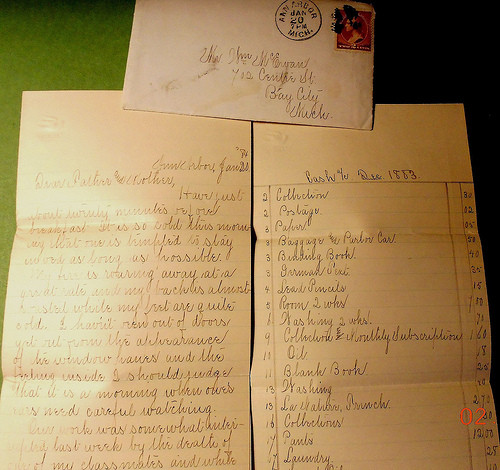 ANN ARBOR
JAN
20
7PM
MICH.
Mr. Wm. McEwan
712 Centre St
Bay City
Mich.
Ann Arbor, Jan 20 '84
Dear Father & Mother,
Have just
about twenty minutes before
breakfast. It is so cold this morn
ing that one is tempted to stay
in bed as long as possible.
My fire is roaring away at a
great rate and my back is almost
roasted while my feet are quite
cold. I haven't been out of doors
yet but from the appearance
of the window panes and the
feeling inside I should judge
that it is a morning when ones
ears need careful watching.
Our work was somewhat inter-
rupted last week by the death of
of my classmates and while
Cash % Dec. 1883.
2 Collection
2 Postage 02
3 Paper 05
3 Baggage & Parlor Car
3 Binding Book 40
3 German Text 35
4 Lead Pencils 15
5 Room 2 wks 7.00
8 Washing 2 wks. 70
9 Collection & Monthly Subscription 1 60
10 Oil 18
11 Blank Book 25
13 Washing
13 La Nature, French 2 70
16 Collections
17 Pants 12 00
17 Laundry 25
02